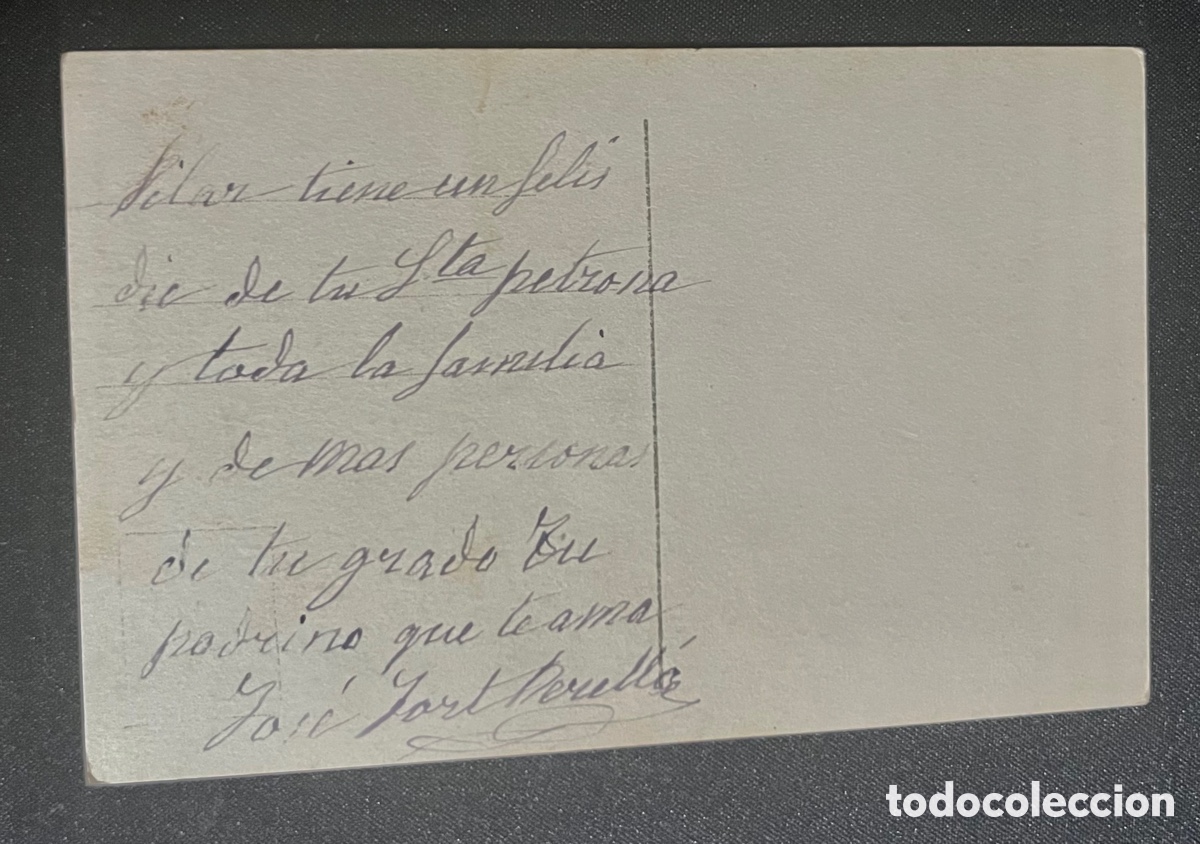 Pilar tiene un felis
die de tu Sta petrona
y toda la familia
y de mas personas
de tu grado Tu
padrino que te ama
José Fort Perelló
todocoleccion